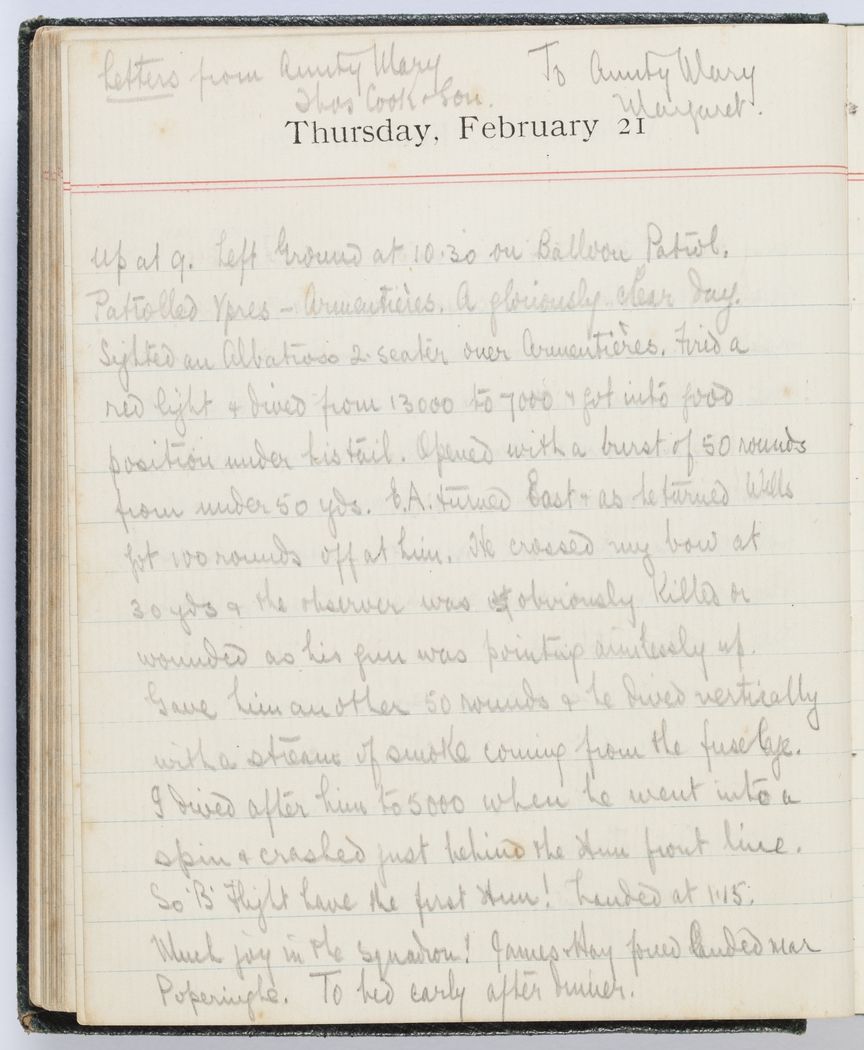 Letters from Aunty Mary To Aunty Mary
Thos Cook & Son. Margaret.
Thursday, February 21
Up at 9. Left Ground at 10.30 on Balloon Patrol.
Patrolled Ypres - Armentières. A gloriously clear day.
Sighted an Albatross 2-seater over Armentières. Fired a
red light & dived from 13000 to 7000 & got into good
position under his tail. Opened with a burst of 50 rounds
from under 50 yds. E.A. turned East & as he turned Wells
got 100 rounds off at him. He crossed my bow at
30 yds & the observer was obviously killed or
wounded as his gun was pointing aimlessly up.
Gave him another 50 rounds & he dived vertically
with a stream of smoke coming from the fuselage.
I dived after him to 5000 when he went into a
spin & crashed just behind the Hun front line.
So 'B' Flight have the first Hun! Landed at 1.15.
Much joy in the squadron! James & Hay forced landed near
Poperinghe. To bed early after dinner.